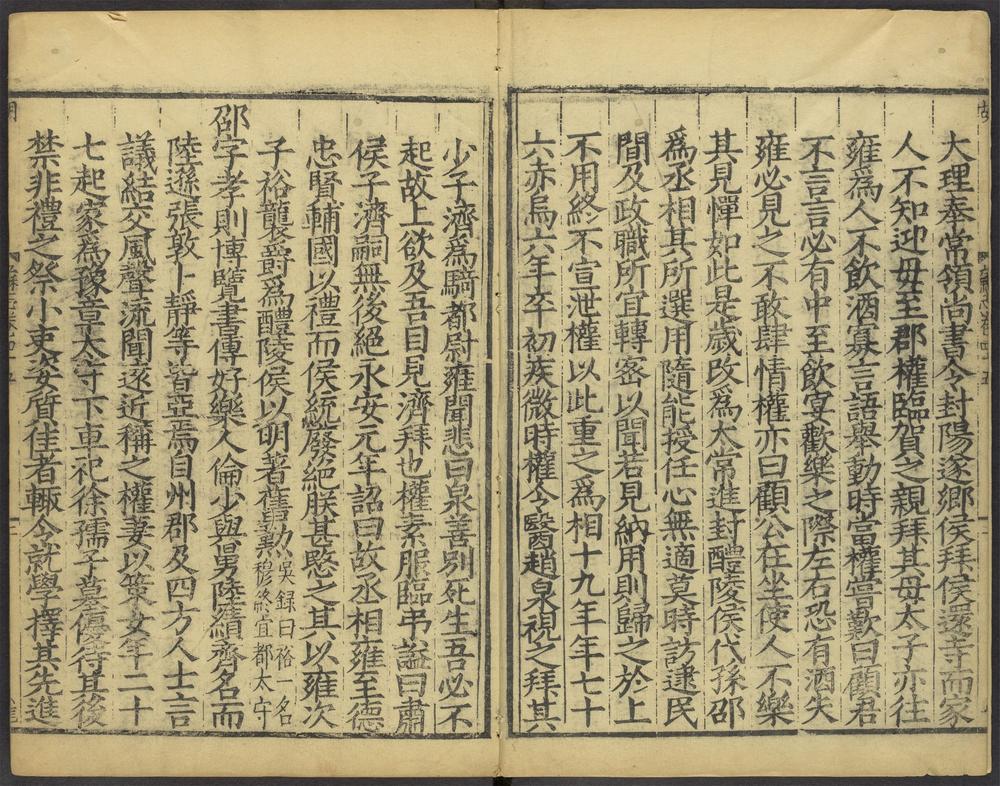 大理奉常領尚書令封陽遂鄉侯拜侯還寺而家
人不知迎母至郡權臨賀之親拜其母太子亦往
雍爲人不飲酒寡言語舉動時當權嘗歎曰顧君
不言言必有中至飲宴歡樂之際左右恐有酒失
雍必見之不敢肆情權亦曰顧公在坐使人不樂
其見憚如此是歲改爲太常進封醴陵侯代孫邵
爲丞相其所選用隨能授任心無適莫時訪逮民
間及政職所宜轉密以聞若見納用則歸之於上
不用終不宣泄權以此重之爲相十九年年七十
六赤烏六年卒初疾微時權令醫趙泉視之拜其
少子濟爲騎都尉雍聞悲曰泉善別死生吾必不
起故上欲及吾目見濟拜也權素服臨弔謚曰肅
侯子濟嗣無後絕永安元年詔曰故丞相雍至德
忠賢輔國以禮而侯統廢絕朕甚愍之其以雍次
子裕襲爵爲醴陵侯以明著舊勳吳録曰裕一名穆終宜都太守
邵字孝則博覽書傳好樂人倫少與舅陸績齊名而
陸遜張敦卜靜等皆亞焉自州郡及四方人士言
議結交風聲流聞遠近稱之權妻以策女年二十
七起家爲豫章太守下車祀徐孺子墓優待其後
禁非禮之祭小吏姿質佳者輒令就學擇其先進